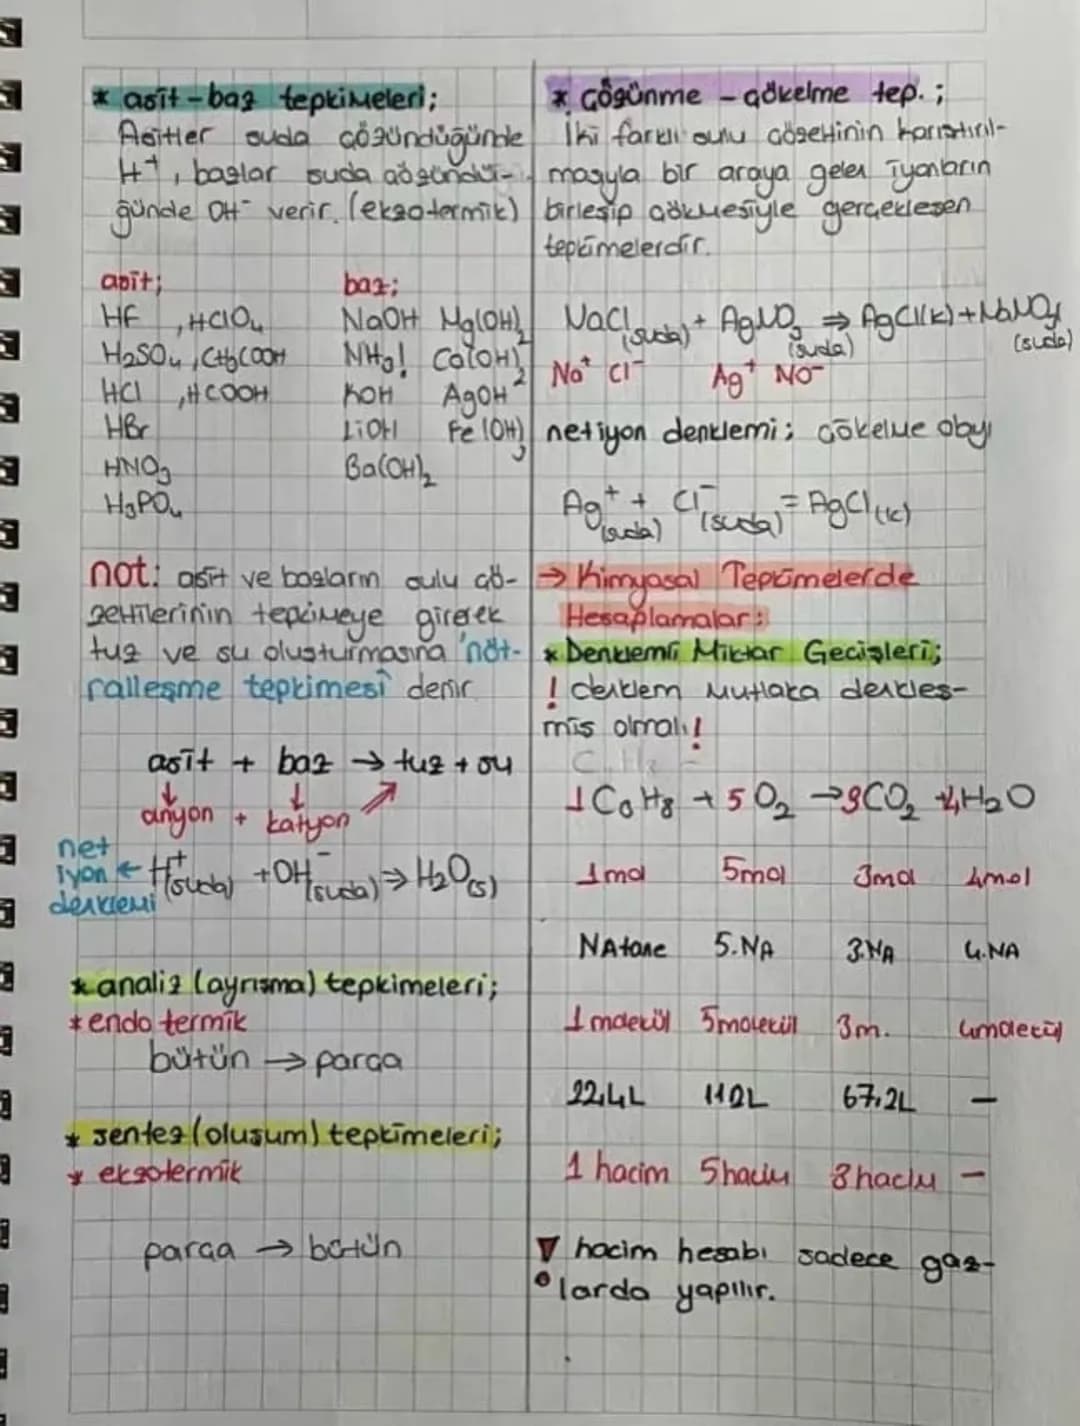 * asit-baz tepkimeleri;
Asitler suda çözündüğünde
H⁺, bazlar suda çözündü-
ğünde OH⁻ verir. (ekzotermik)
asit;
baz;
HF , HClO₄
NaOH Mg(OH)₂
H₂SO₄ , CH₃COOH
NH₃! Ca(OH)₂
HCl , HCOOH
KOH AgOH
HBr
LiOH Fe(OH)₃
HNO₃
Ba(OH)₂
H₃PO₄
not: asit ve bazların sulu çö-
zeltilerinin tepkimeye girerek
tuz ve su oluşturmasına 'nöt-
ralleşme tepkimesi' denir
asit + baz → tuz + su
anyon + katyon
net
iyon ← H⁺(suda) + OH⁻(suda) ⇒ H₂O(s)
denklemi
* analiz (ayrışma) tepkimeleri;
* endotermik
bütün → parça
* sentez (oluşum) tepkimeleri;
* ekzotermik
parça → bütün
* Çözünme - çökelme tep. ;
İki farklı sulu çözeltinin karıştırıl-
masıyla bir araya gelen iyonların
birleşip çökmesiyle gerçekleşen
tepkimelerdir.
NaCl(suda) + AgNO₃(suda) ⇒ AgCl(k) + NaNO₃(suda)
Na⁺ Cl⁻ Ag⁺ NO⁻
net iyon denklemi; çökelme olayı
Ag⁺(suda) + Cl⁻(suda) = AgCl(k)
→ Kimyasal Tepkimelerde
Hesaplamalar:
* Denklemli Miktar Geçişleri;
! denklem mutlaka denkleş-
miş olmalı!
1 C₃H₈ + 5 O₂ → 3CO₂ + 4H₂O
1mol 5mol 3mol 4mol
NA tane 5.NA 3.NA 4.NA
1 molekül 5molekül 3m. 4molekül
22,4L 112L 67,2L —
1 hacim 5hacim 3hacim —
hacim hesabı sadece gaz-
larda yapılır.